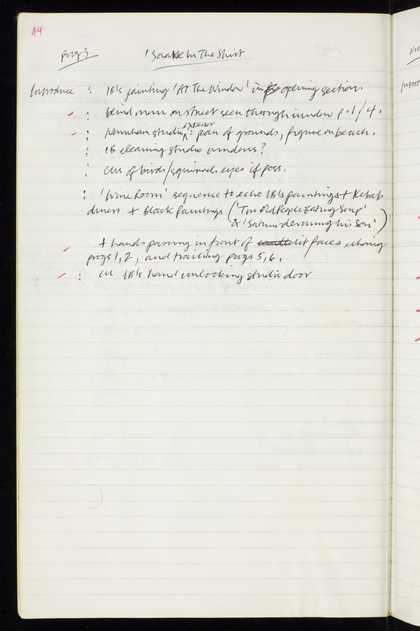 44
prog 3 'Snake In The Shirt
Introduce : IB's painting 'At The Window' in opening section.
: blind man on street seen through window p.1/4.
: studio exterior : pan of grounds, figure on beach.
: IB cleaning studio windows?
: CUs of birds/squirrels eyes if poss.
: 'Wine Room' sequence to echo IB's paintings + Kebab
diners + Black Paintings ('Two Old People Eating Soup'
& 'Saturn devouring his son')
+ hands passing in front of lit faces echoing
progs 1, 2, and trailing progs 5, 6.
: CU IB's hand unlocking studio door